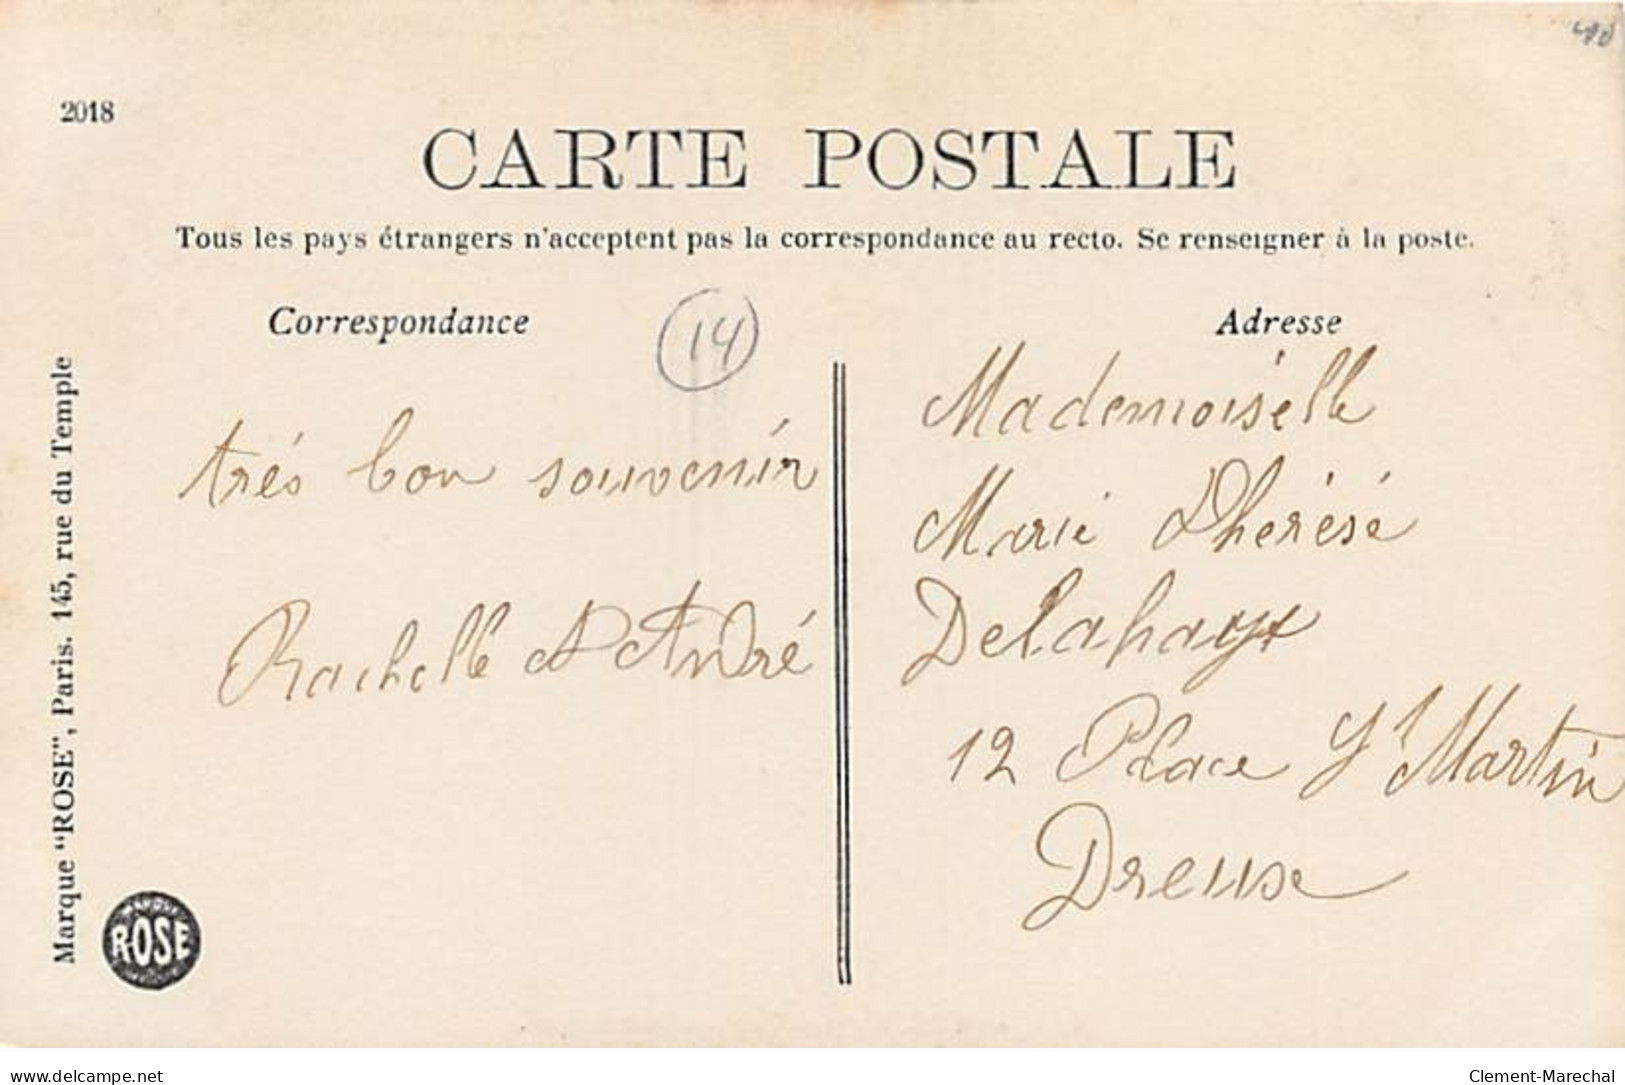 2018
CARTE POSTALE
Tous les pays étrangers n'acceptent pas la correspondance au recto. Se renseigner à la poste.
Correspondance
14
Adresse
trés bon souvenir
Rachelle André
Mademoiselle
Marie Thérésé
Delahaye
12 Place St Martin
Marque "ROSE", Paris. 145, rue du Temple
ROSE
delcampe.net
Clement-Marechal